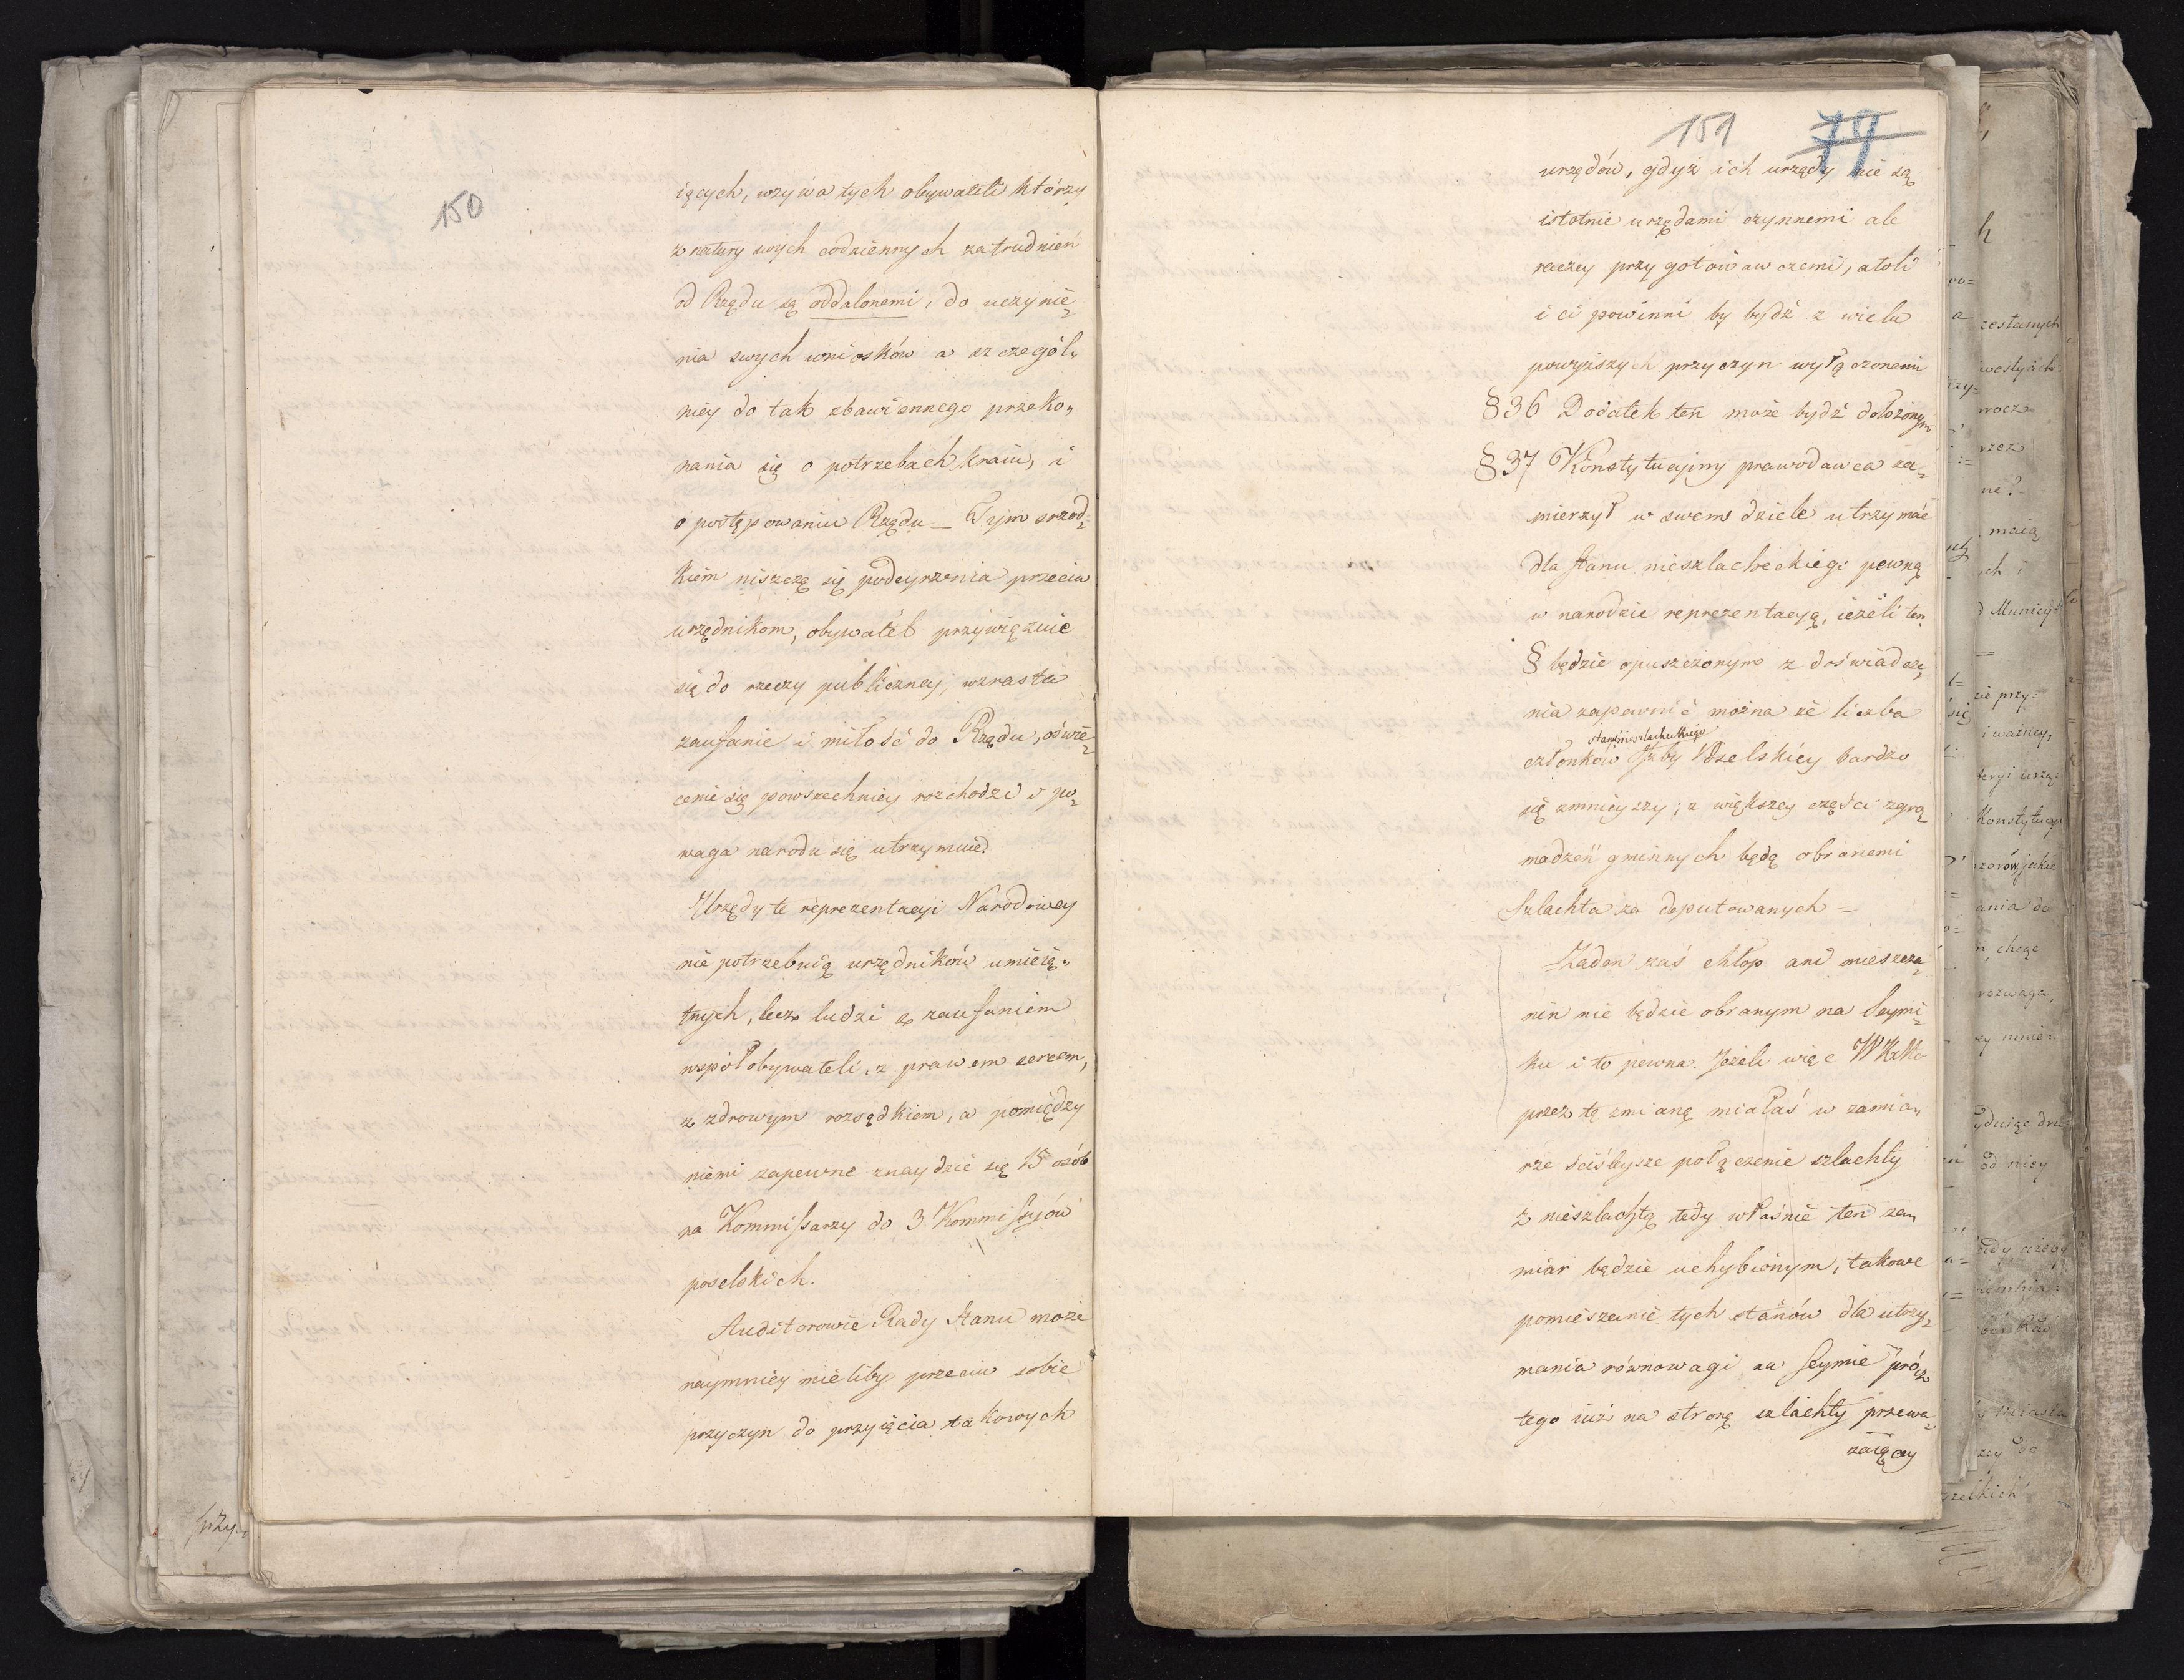 150
iących, wzywa tych obywateli którzy
z natury swych codziennych zatrudnień
od Rządu są oddalonemi, do uczynie„
nia swych wniosków a szczegól„
niey do tak zbawiennego przeko„
nania się o potrzebach kraiu, i
o postępowaniu Rządu — Tym srzod„
kiem niszczą się podeyrzenia przeciw
urzędnikom, obywatel przywiązuie
się do rzeczy publiczney, wzrasta
zaufanie i miłość do Rządu, oświe„
cenie się powszechniey rozchodzi i po„
waga narodu się utrzymuie.
Urzędy te reprezentacyi Narodowey
nie potrzebuią urzędników umieię„
tnych, lecz ludzi z zaufaniem
wspołobywateli, z prawem sercem,
z zdrowym rozsądkiem, a pomiędzy
niemi zapewne znaydzie się 15 osób
na Kommissarzy do 3 Kommissyów
poselskich.
Auditorowie Rady Stanu może
naymniey mieliby przeciw sobie
przyczyn do przyięcia takowych
151 79
urzędów, gdyż ich urzędy nie są
istotnie urzędami czynnemi ale
raczey przygotowawczemi, atoli
i ci powinni by bydź z wielu
powyższych przyczyn wyłączonemi
§36 Dodatek ten może bydź dołożonym
§37 Konstytucyiny prawodawca za„
mierzył w swem dziele utrzymać
dla stanu nieszlacheckiego pewną
w narodzie reprezentacyą, ieżeli ten
§ będzie opuszczonym z doświadcze„
nia zapewnić można że liczba
stanu nieszlacheckiego
członków Izby Poselskiey bardzo
się zmnieyszy; z większey części zgro„
madzeń gminnych będą obranemi
Szlachta za deputowanych —
Żaden zaś chłop ani mieszcza„
nin nie będzie obranym na Seymi„
ku i to pewna. Jeżeli więc
przez tę zmianę miałaś w zamia„
rze ściśleysze połączenie szlachty
z nieszlachtą tedy właśnie ten za„
miar będzie uchybionym, takowe
pomieszanie tych stanów dla utrzy„
mania równowagi na Seymie prócz
tego iuż na stronę szlachty przewa„
żaiącey